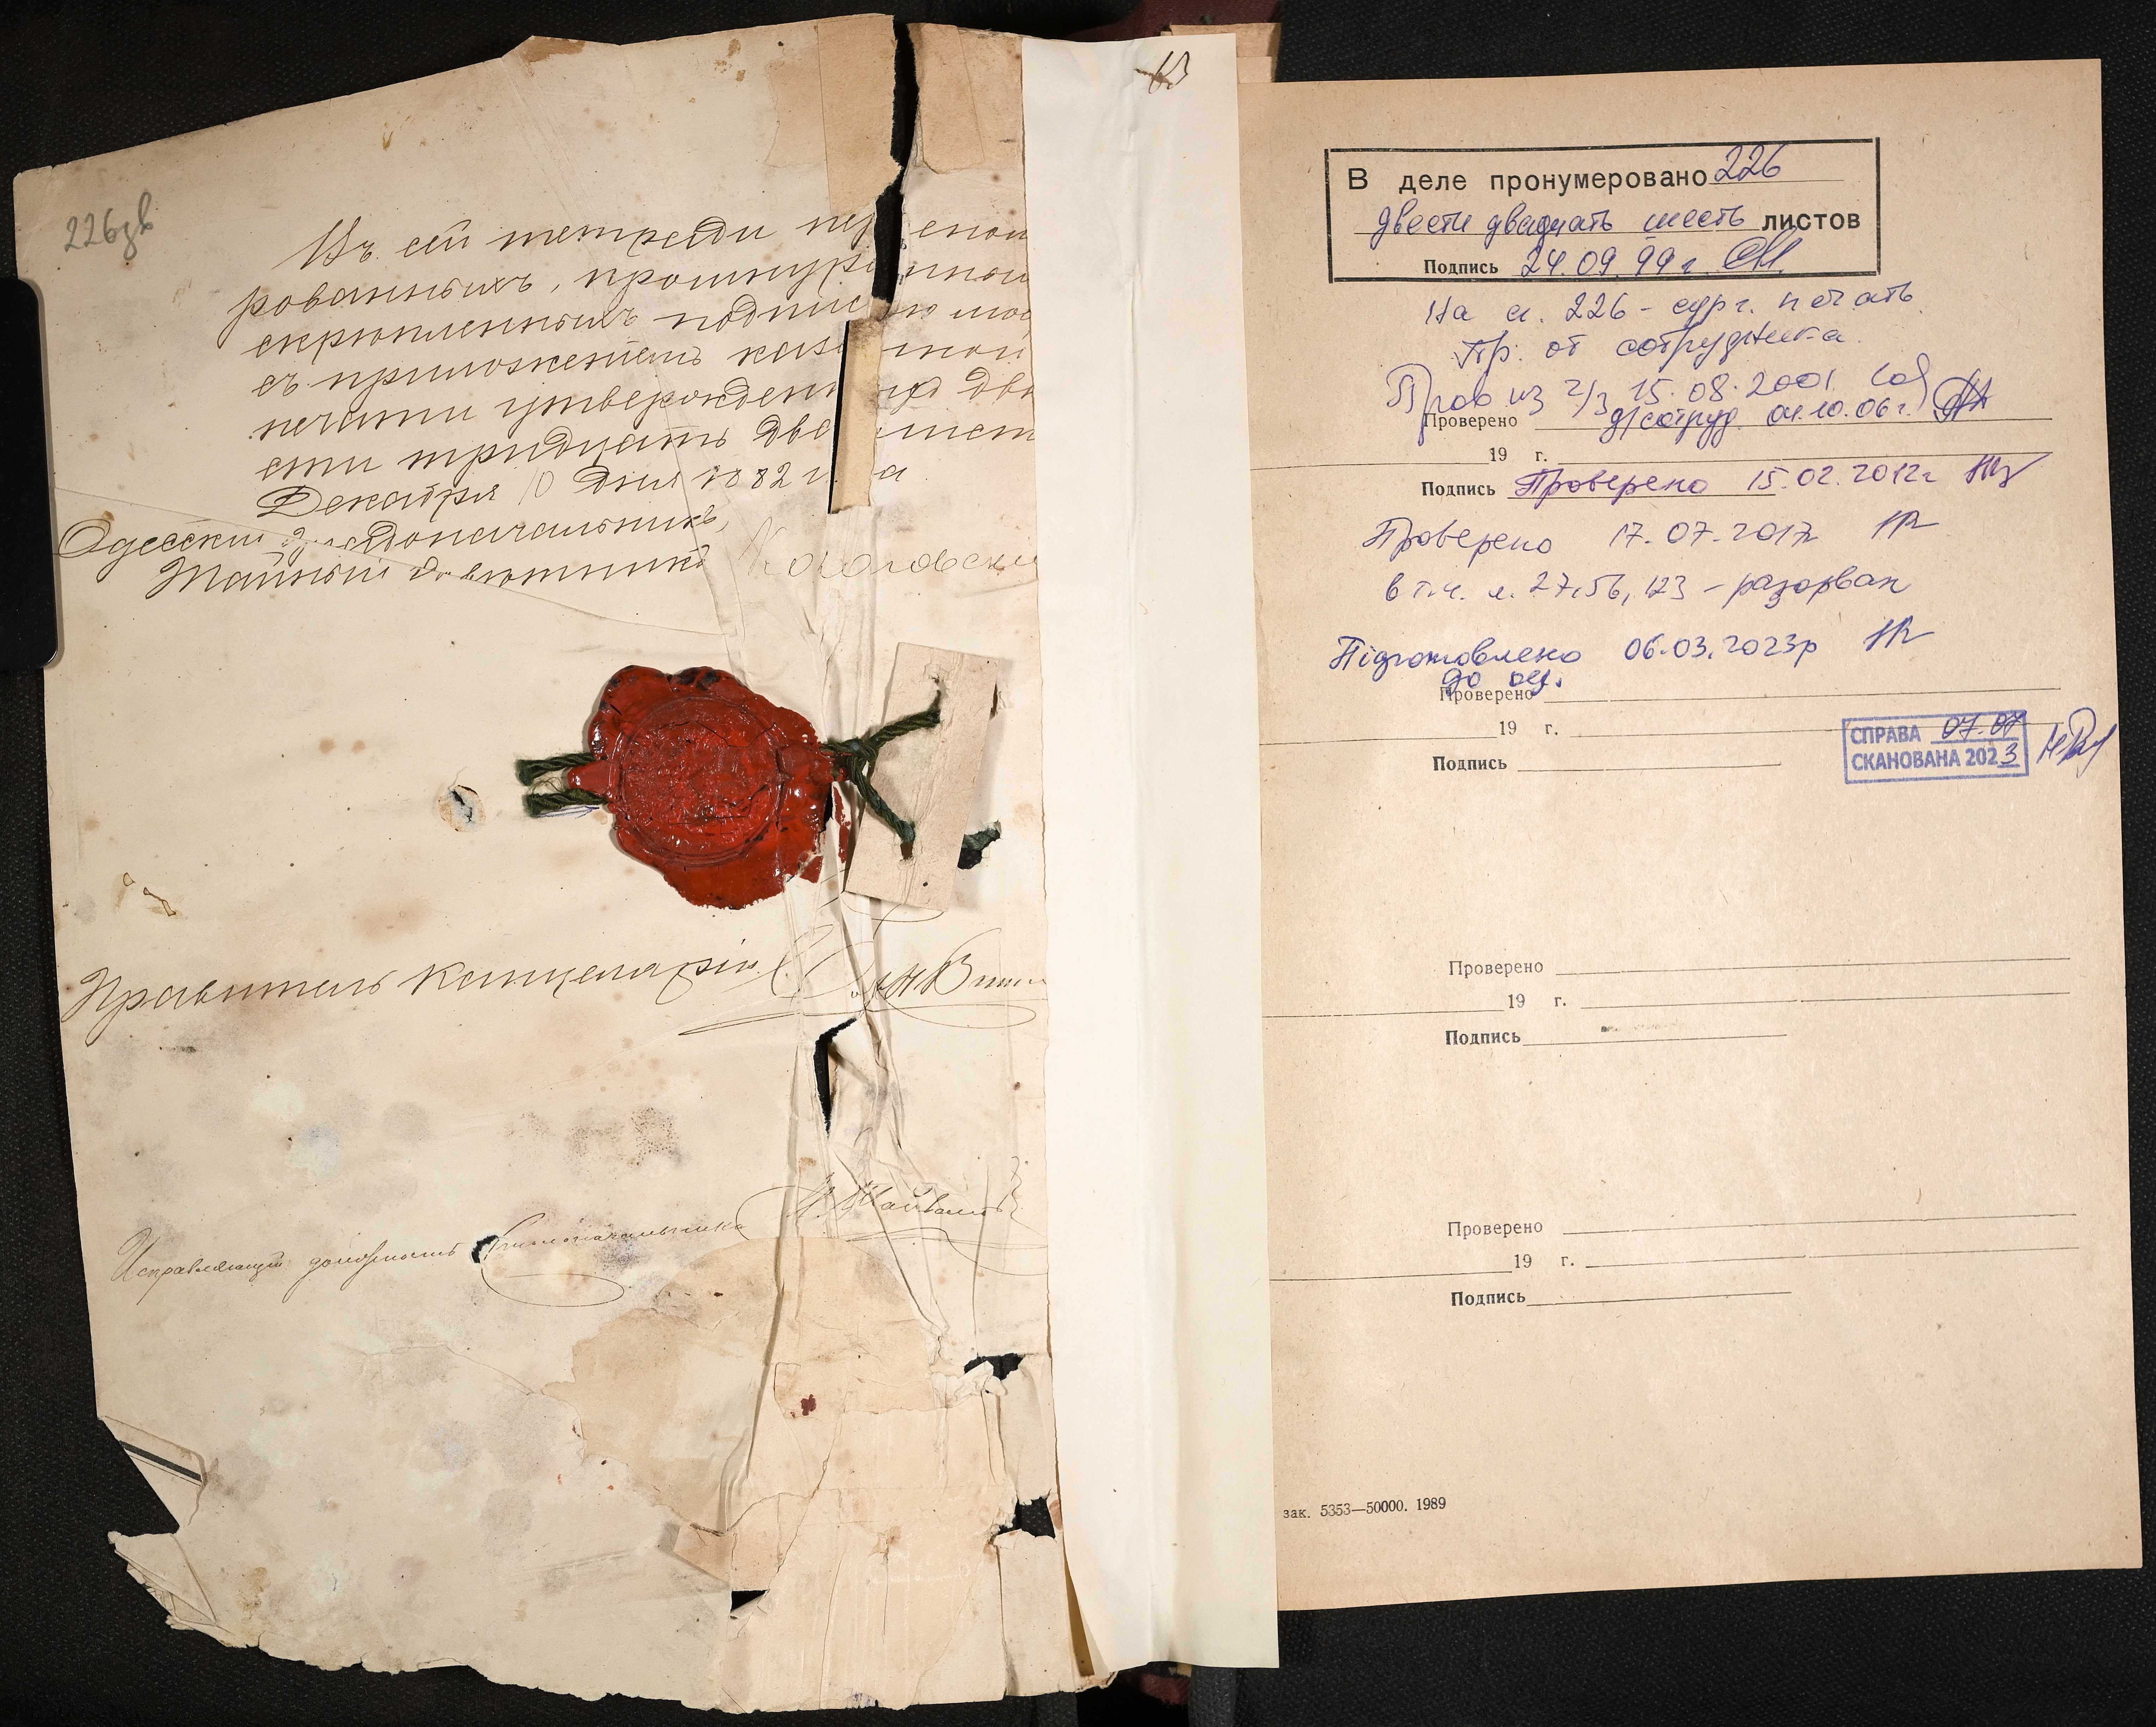 226зв
Въ сей тетради пе енои
рованныхъ, прошнур нныхъ
скрѣпленныхъ подписью мое
съ приложеніемъ каз нной
печати утвержден два
сти тридцать два лист
Декабря 10 дня 1882 г а
Одесскій Градоначальникъ,
Тайный Совѣтникъ Косаговскій
Правитель Канцеляріи
Исправляющій должность Столоначальника
В деле пронумеровано 226
двести двадцать шесть листов
Подпись 24.09.99 г.
На л. 226 - сург. печать
Пр. от сотрудника
Пров из х/з 15.08.2001.
Проверено д/сотруд. 04.10.06 г.
19 г.
Подпись Проверено 15.02.2012 г
Проверено 17.07.2017
в т.ч. л. 27, 56, 123 - разорван
Підготовлено 06.03.2023р
до оц.
Проверено
19 г.
СПРАВА 07.07
СКАНОВАНА 2023
Подпись
Проверено
19 г.
Подпись
Проверено
19 г.
Подпись
зак. 5353—50000. 1989